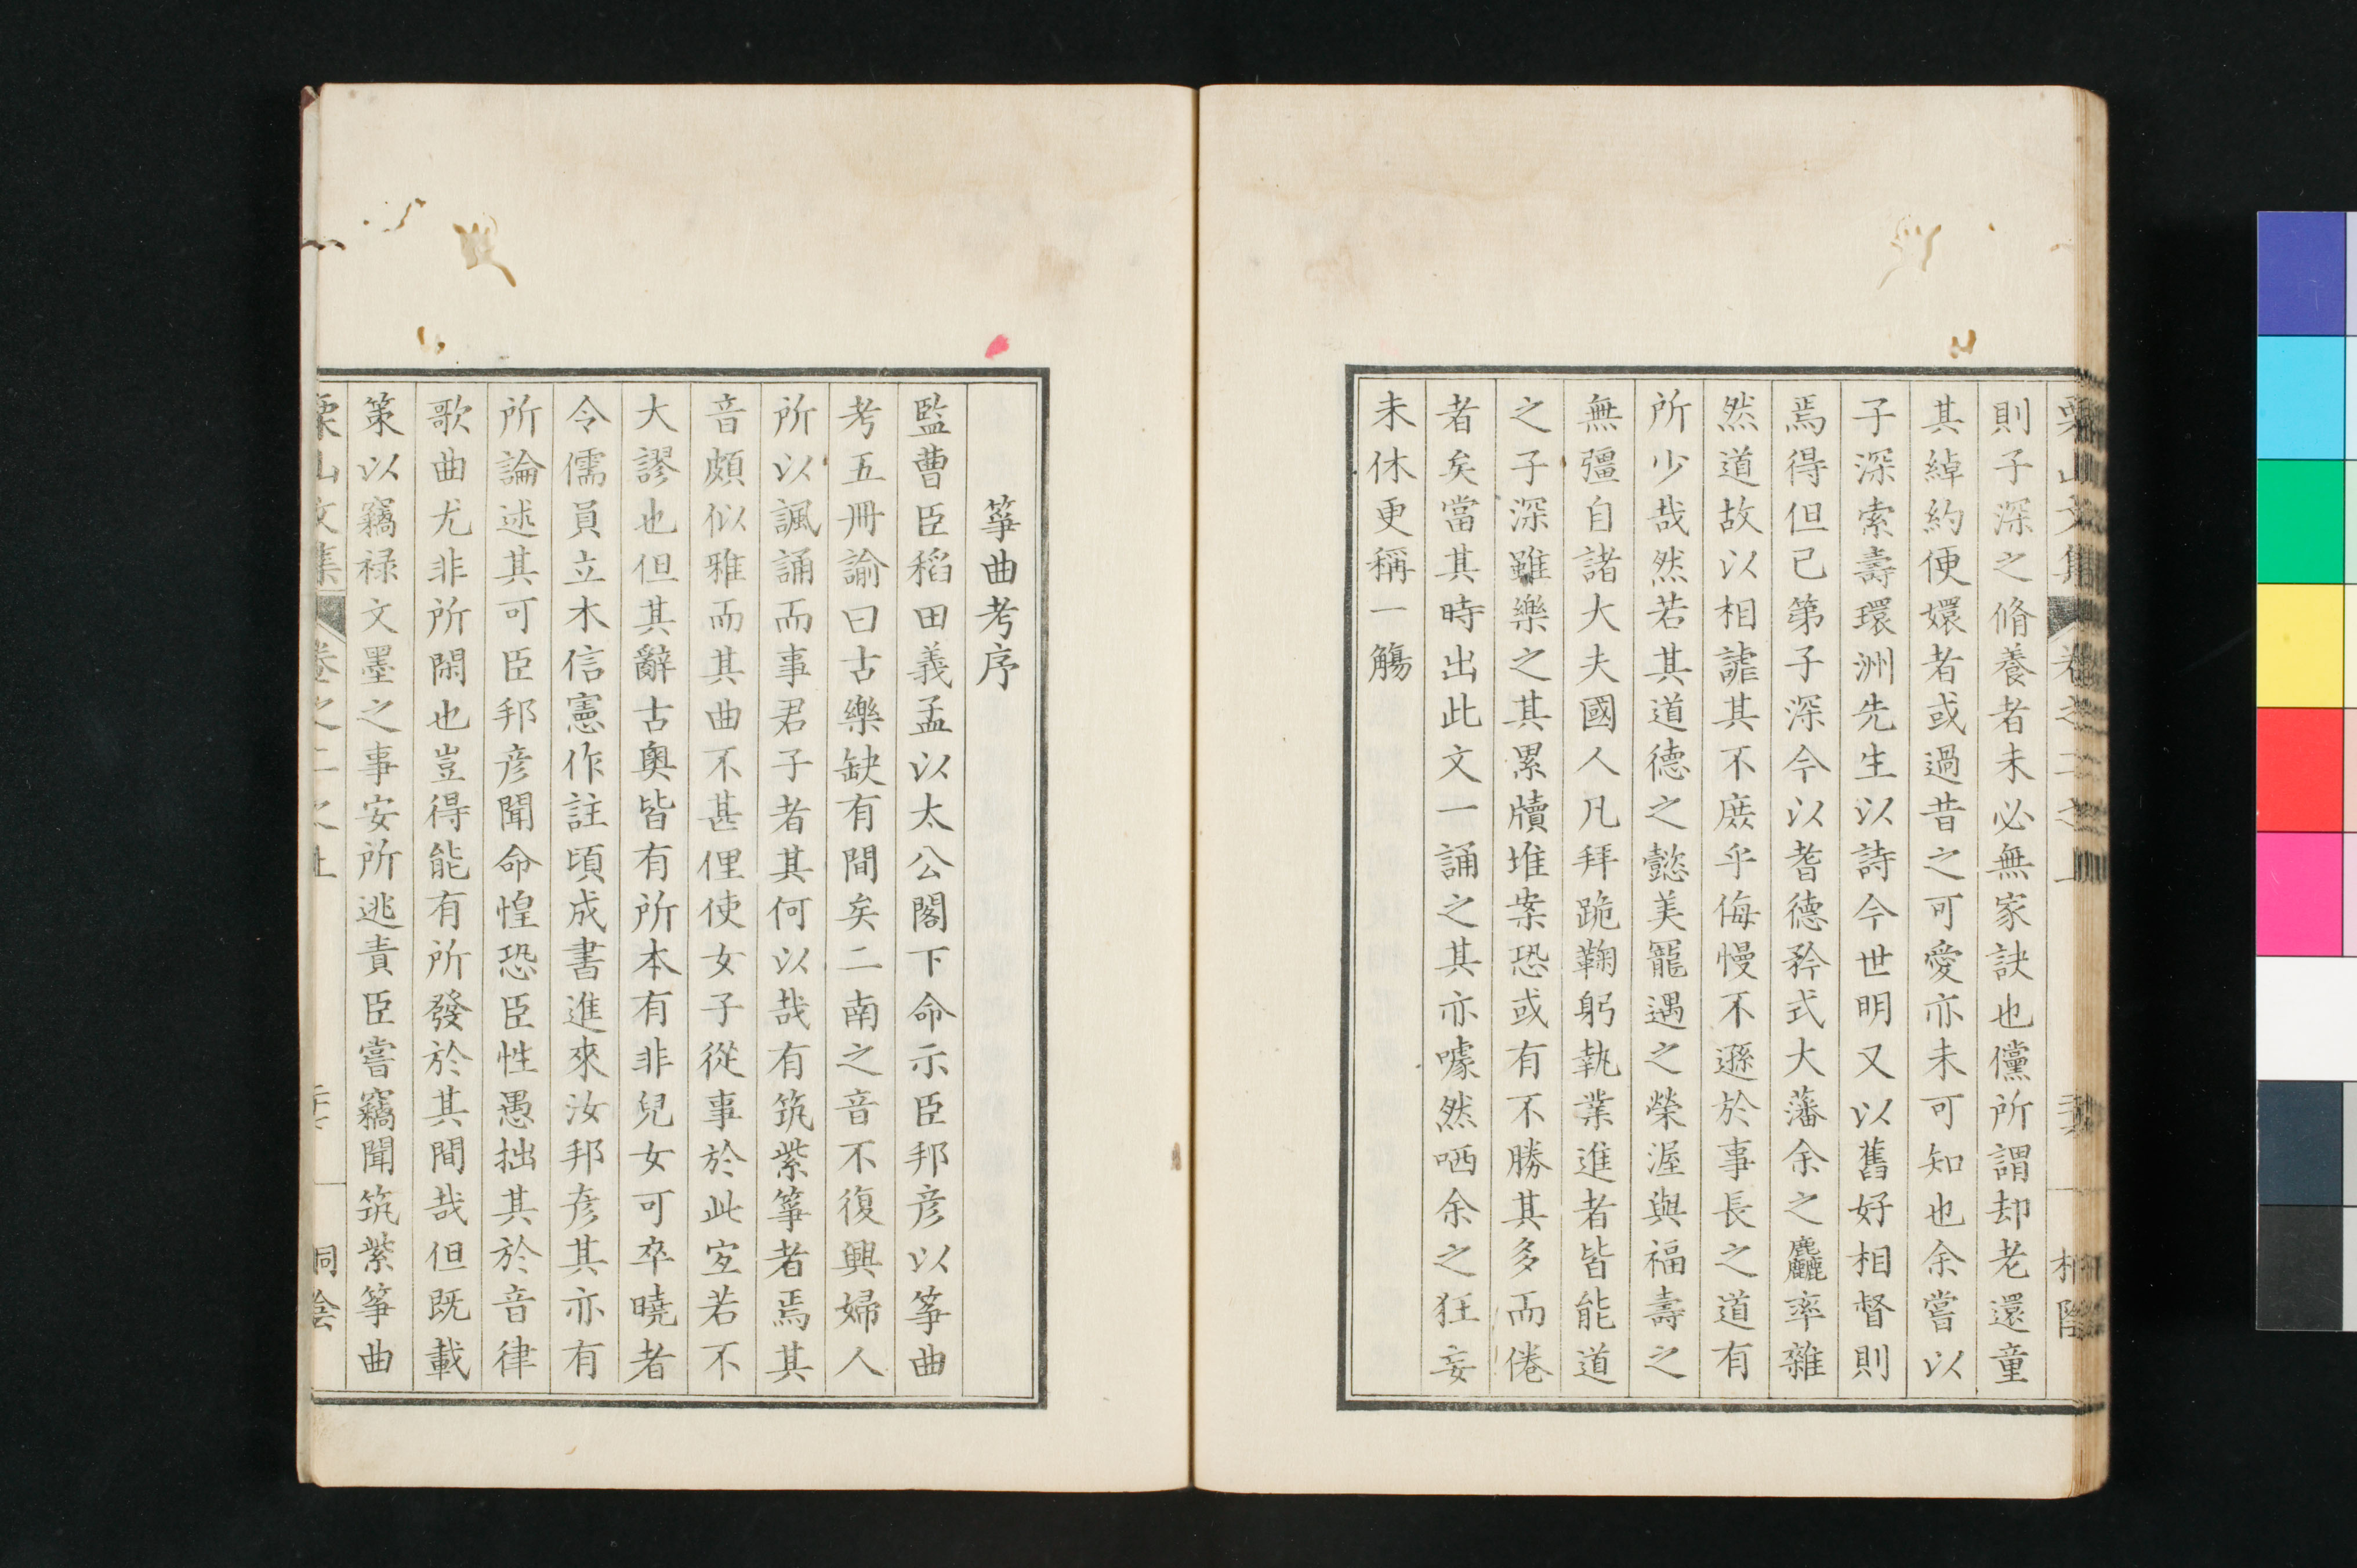 則子深之脩養者未必無家訣也儻所謂却老還童
其綽約便嬛者或過昔之可愛亦未可知也余嘗以
子深索壽環洲先生以詩今世明又以舊好相督則
焉得但已第子深今以耆德矜式大藩余之麤率雜
然道故以相謔其不庶乎侮慢不遜於事長之道有
所少哉然若其道德之懿美寵遇之榮渥與福壽之
無彊自諸大夫國人凡拜跪鞠躬執業進者皆能道
之子深雖樂之其累牘堆案恐或有不勝其多而倦
者矣當其時出此文一誦之其亦噱然哂余之狂妄
未休更稱一觴
箏曲考序
監曹臣稻田義孟以太公閣下命示臣邦彦以箏曲
考五冊諭曰古樂缺有間矣二南之音不復興婦人
所以諷誦而事君子者其何以哉有筑紫箏者焉其
音頗似雅而其曲不甚俚使女子從事於此宐若不
大謬也但其辭古奧皆有所本有非兒女可卒曉者
令儒員立木信憲作註頃成書進來汝邦彦其亦有
所論述其可臣邦彦聞命惶恐臣性愚拙其於音律
歌曲尤非所閑也豈得能有所發於其間哉但既載
策以竊祿文墨之事安所逃責臣嘗竊聞筑紫箏曲
栗山文集 卷之二之上